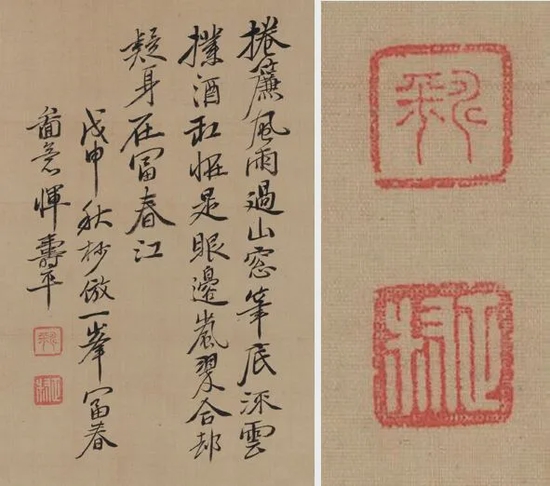 捲簾風雨過山窓筆底流雲
撲酒缸恠是眼邊嵐翠合却
疑身在富春江
戊申秋杪倣一峯富春
啚意惲壽平